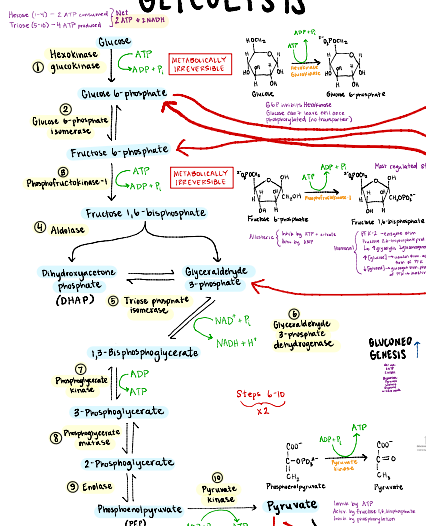 GLYCOLYSIS
Hexose (1-4) - 2 ATP consumed
Triose (5-10) - 4 ATP produced
Net
2 ATP + 2 NADH
Glucose
① Hexokinase
glucokinase
ATP
ADP + Pi
METABOLICALLY
IRREVERSIBLE
Glucose 6-phosphate
② Glucose 6-phosphate
isomerase
Fructose 6-phosphate
③ Phosphofructokinase-1
ATP
ADP + Pi
METABOLICALLY
IRREVERSIBLE
Fructose 1,6-bisphosphate
④ Aldolase
Dihydroxyacetone
phosphate
(DHAP)
Glyceraldehyde
3-phosphate
⑤ Triose phosphate
isomerase
NAD⁺ + Pi
NADH + H⁺
⑥ Glyceraldehyde
3-phosphate
dehydrogenase
1,3-Bisphosphoglycerate
⑦ Phosphoglycerate
kinase
ADP
ATP
Steps 6-10
x2
3-Phosphoglycerate
⑧ Phosphoglycerate
mutase
2-Phosphoglycerate
⑨ Enolase
Phosphoenolpyruvate
(PEP)
⑩ Pyruvate
kinase
ADP
ATP
Pyruvate
ADP + Pi
ATP
Hexokinase
Glucokinase
Glucose
Glucose 6-phosphate
G6P inhibits Hexokinase
Glucose can't leave cell once
phosphorylated (no transporter)
Most regulated
ATP
ADP + Pi
Phosphofructokinase-1
Fructose 6-phosphate
Fructose 1,6-bisphosphate
Allosteric
Hormonal
GLUCONEO
GENESIS
COO⁻
CH₂
Phosphoenolpyruvate
ADP + Pi
ATP
Pyruvate
kinase
COO⁻
C=O
CH₃
Pyruvate
Inhib by ATP
Activ by fructose 1,6-bisphosphate
Inhib by phosphorylation